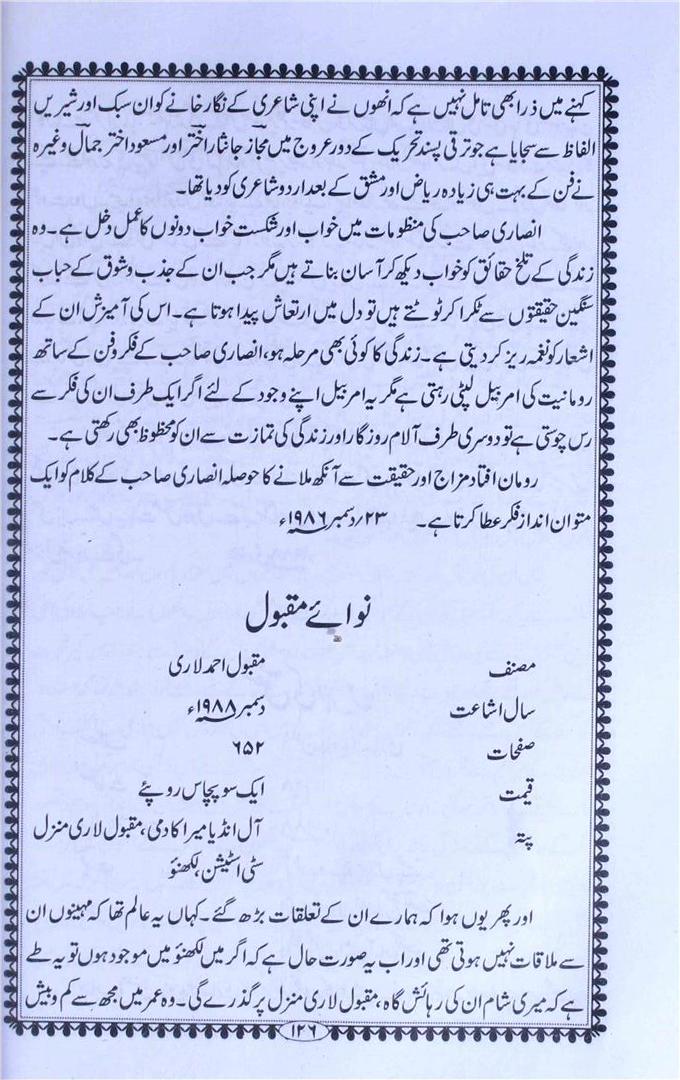 کہنے میں ذرا بھی تامل نہیں ہے کہ انھوں نے اپنی شاعری کے نگار خانے کو ان سبک اور شیریں
الفاظ سے سجایا ہے جو ترقی پسند تحریک کے دور عروج میں مجاز جانثار اختر اور مسعود اختر جمال وغیرہ
نے فن کے بہت ہی زیادہ ریاض اور مشق کے بعد اردو شاعری کو دیا تھا۔
انصاری صاحب کی منظومات میں خواب اور شکست خواب دونوں کا عمل دخل ہے۔ وہ
زندگی کے تلخ حقائق کو خواب دیکھ کر آسان بناتے ہیں مگر جب ان کے جذب و شوق کے حباب
سنگین حقیقتوں سے ٹکرا کر ٹوٹتے ہیں تو دل میں ارتعاش پیدا ہوتا ہے۔ اس کی آمیزش ان کے
اشعار کو نغمہ ریز کر دیتی ہے۔ زندگی کا کوئی بھی مرحلہ ہو، انصاری صاحب کے فکر فن کے ساتھ
رومانیت کی امر بیل لپٹی رہتی ہے مگر یہ امر بیل اپنے وجود کے لئے اگر ایک طرف ان کی فکر سے
رس چوستی ہے تو دوسری طرف آلام روزگار اور زندگی کی تمازت سے ان کو محظوظ بھی رکھتی ہے۔
رومان افتاد مزاج اور حقیقت سے آنکھ ملانے کا حوصلہ انصاری صاحب کے کلام کو ایک
متوان انداز فکر عطا کرتا ہے۔ ۲۳؍دسمبر ۱۹۸۶ء
نوائے مقبول
مصنف مقبول احمد لاری
سال اشاعت دسمبر ۱۹۸۸ء
صفحات ۶۵۲
قیمت ایک سو پچاس روپئے
پتہ آل انڈیا میر اکادمی، مقبول لاری منزل
سٹی اسٹیشن، لکھنؤ
اور پھر یوں ہوا کہ ہمارے ان کے تعلقات بڑھ گئے۔ کہاں یہ عالم تھا کہ مہینوں ان
سے ملاقات نہیں ہوتی تھی اور اب یہ صورت حال ہے کہ اگر میں لکھنؤ میں موجود ہوں تو یہ طے
ہے کہ میری شام ان کی رہائش گاہ، مقبول لاری منزل پر گذرے گی۔ وہ عمر میں مجھ سے کم و بیش
۱۲۶